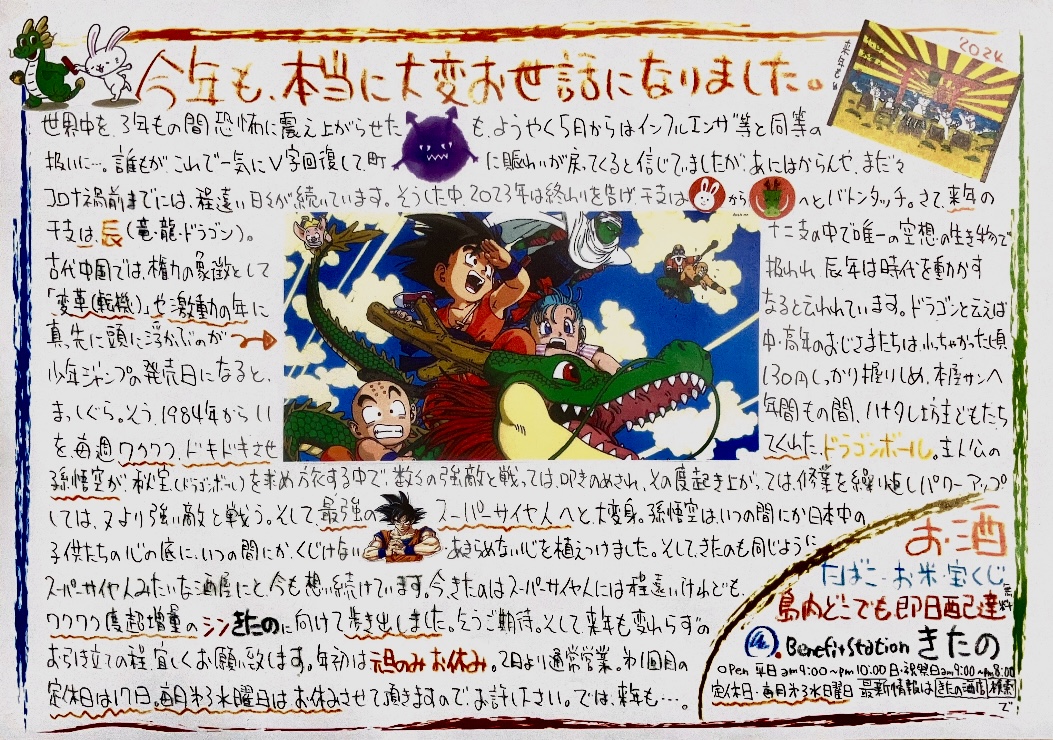 今年も、本当に大変お世話になりました。
来年も
2024
世界中を、3年もの間恐怖に震え上がらせた も、ようやく5月からはインフルエンザ等と同等の
扱いに…。誰もが、これで一気にV字回復して町 に賑わいが戻ってくると信じてましたが、あにはからんや、まだ々
コロナ禍前までには、程遠い日々が続いています。そうした中、2023年は終わりを告げ、干支は から へとバトンタッチ。さて、来年の
干支は、辰(竜・龍・ドラゴン)。 十二支の中で唯一の空想の生き物で
古代中国では、権力の象徴として 扱われ 辰年は時代を動かす
「変革(転機)」や激動の年に なると云われています。ドラゴンと云えば
真先に頭に浮かぶのが 中・高年のおじさまたちは、小ちゃかった頃
少年ジャンプの発売日になると、 130円しっかり握りしめ、本屋サンへ
まっしぐら。そう、1984年から11 年間もの間、ハナタレ坊主どもたち
を、毎週ワクワク、ドキドキさせ てくれた、ドラゴンボール。主人公の
孫悟空が、秘宝(ドラゴンボール)を求め旅する中で、数々の強敵と戦っては、叩きのめされ、その度起き上がっては、修業を繰り返しパワーアップ
しては、又より強い敵と戦う。そして最強の スーパーサイヤ人へと、大変身。孫悟空は、いつの間にか日本中の
子供たちの心の底に、いつの間にか、くじけない あきらめない心を植えつけました。そして、きたのも同じように
スーパーサイヤ人みたいな酒屋にと、今も想い続けています。今、きたのはスーパーサイヤ人には程遠いけれども、
ワクワク度超増量のシンきたのに向けて歩き出しました。乞うご期待。そして来年も変わらずの
お引き立ての程、宜しくお願い致します。年初は、元旦のみお休み。2日より通常営業。第1回目の
定休日は17日。毎月第3水曜日はお休みさせて頂きますので、お許しください。では、来年も…。
お酒
たばこ・お米・宝くじ
島内どこでも即日配達
無料
Benefit Station きたの
Open 平日am9:00〜pm10:00 日・祝祭日am9:00〜pm8:00
定休日・毎月第3水曜日 最新情報は きたの酒店 検索
で